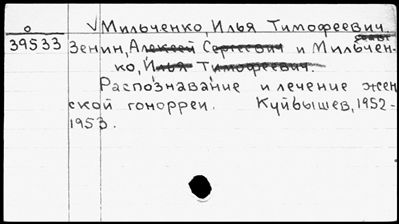 о
39533
√ Мильченко, Илья Тимофеевич
Зенин, Алексей Сергеевич и Мильчен-
ко, Илья Тимофеевич.
Распознавание и лечение жен
ской гонорреи. Куйбышев, 1952-
1953.